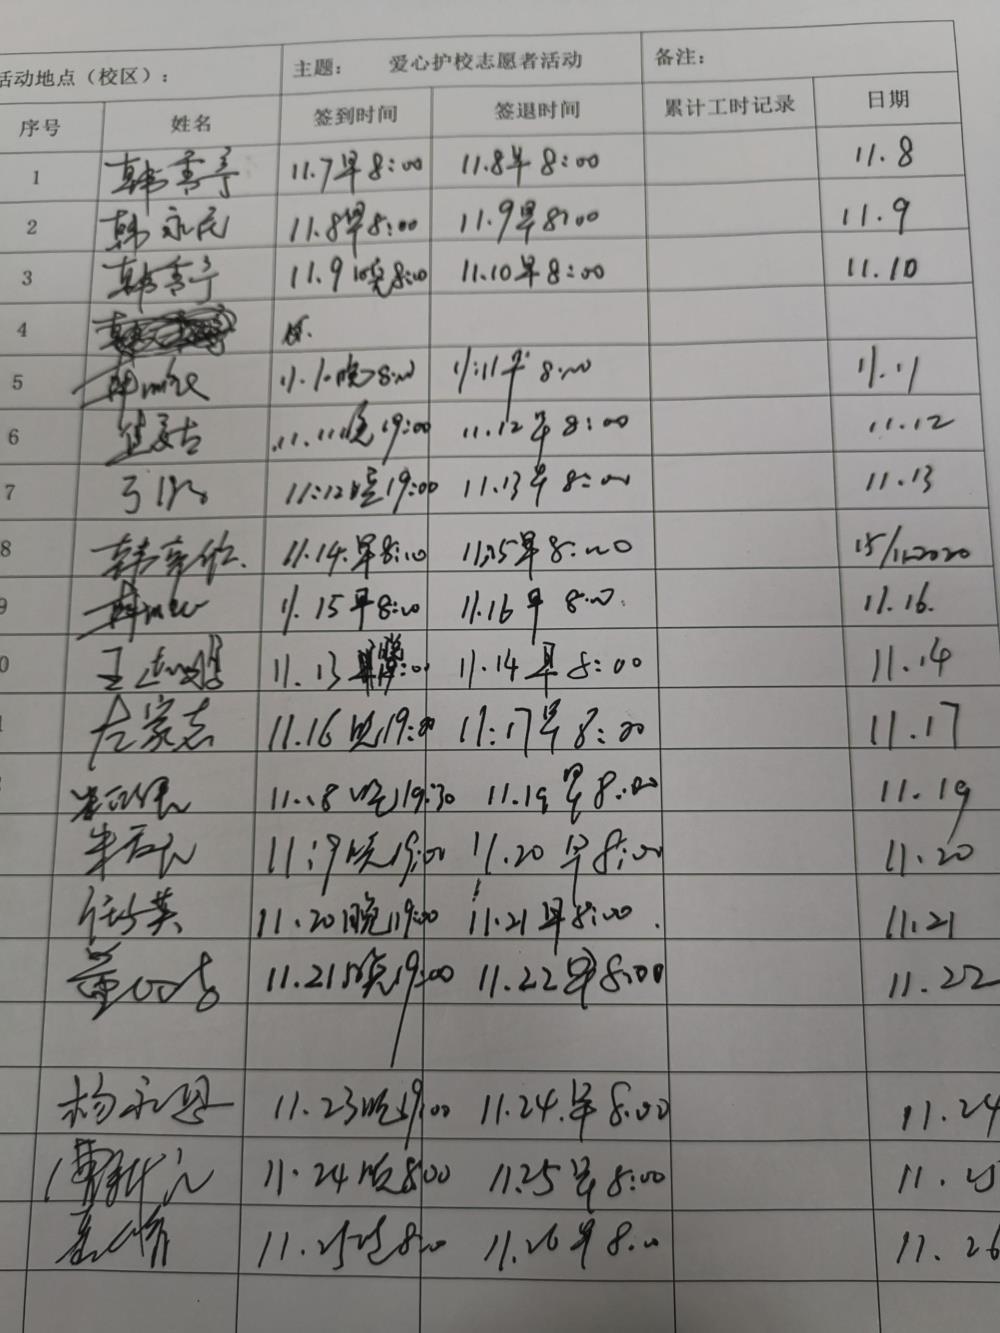 活动地点（校区）： 主题： 爱心护校志愿者活动 备注：
序号 姓名 签到时间 签退时间 累计工时记录 日期
1 韩秀宁 11.7早8:00 11.8早8:00 11.8
2 韩永民 11.8早8:00 11.9早8:00 11.9
3 韩秀宁 11.9晚8:00 11.10早8:00 11.10
4
5 11.10晚8:00 11.11早8:00 11.11
6 11.11晚19:00 11.12早8:00 11.12
7 11:12晚19:00 11.13早8:00 11.13
8 11.14.早8:00 11.15早8:00 15/11.2020
9 11.15早8:00 11.16早8:00. 11.16.
0 王志鹏 11.13 晚19:00 11.14早8:00 11.14
左家志 11.16晚19:00 11:17早8:00 11.17
11.18晚19:30 11.19早8:00 11.19
11.19晚19:00 11.20早8:00 11.20
任英 11.20晚19:00 11.21早8:00. 11.21
11.21晚19:00 11.22早8:00 11.22
杨永恩 11.23晚19:00 11.24.早8:00 11.24
11.24晚8:00 11.25早8:00 11.25
11.25晚8:00 11.26早8:00 11.26